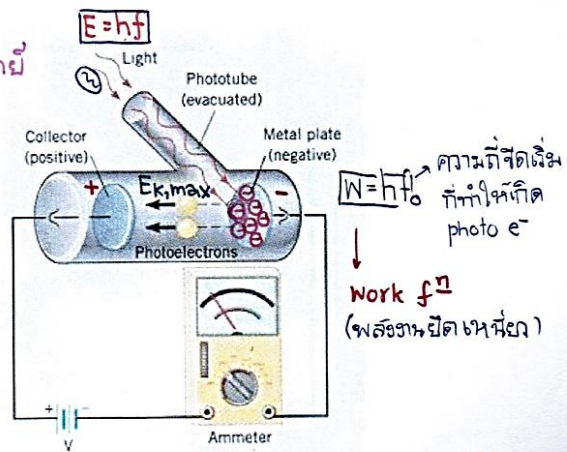 E = hf
Light
Phototube
(evacuated)
Collector
(positive)
Metal plate
(negative)
+
Ek,max
-
Photoelectrons
W = hf₀
ความถี่ขีดเริ่ม
ที่ทำให้เกิด
photo e⁻
work fⁿ
(พลังงานยึดเหนี่ยว)
+ -
V
Ammeter